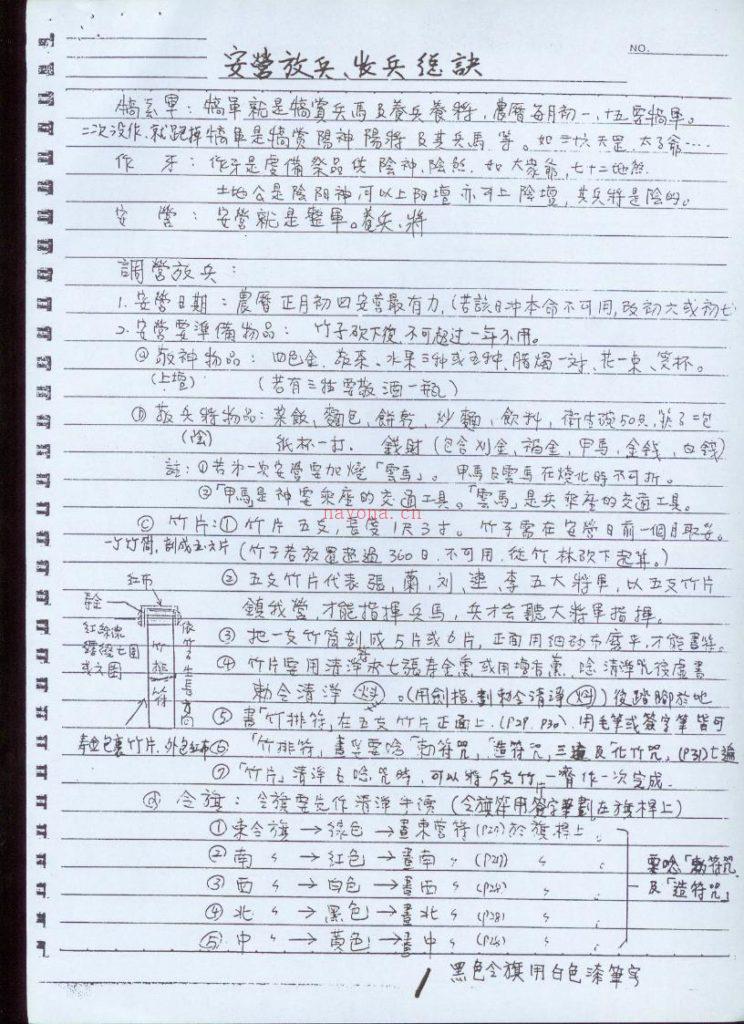 NO.
安營放兵、收兵總訣
犒軍：犒軍就是犒賞兵馬及養兵養將，農曆每月初一、十五要犒軍。
二次沒作，就跑掉犒軍是犒賞陽神陽將及其兵馬等。如三六天罡，太子爺……
作牙：作牙是虔備祭品供陰神、陰煞，如大眾爺，七十二地煞
土地公是陰陽神可以上陽壇亦可上陰壇，其兵將是陰的。
安營：安營就是整軍。養兵、將
調營放兵：
1.安營日期：農曆正月初四安營最有力，(若該日沖本命不可用，改初六或初七
2.安營要準備物品：竹子砍下後，不可超过一年不用。
ⓐ敬神物品：四色金，發菜、水果三种或五种，腊燭一对，花一束，筊杯。
(上壇) (若有三牲要敬酒一瓶)
ⓑ敬兵將物品：菜飯，麵包，餅乾，炒麵，飲料，衛生碗50只，筷子二包
(陰) 紙杯一打. 錢財(包含刈金，福金，甲馬，金錢，白錢)
註：①若第一次安營要加燒「雲馬」。甲馬及雲馬在燒化時不可折。
②「甲馬是神要乘座的交通工具。「雲馬」是兵乘座的交通工具。
ⓒ竹片：①竹片五支，長度1尺3寸。竹子需在安營日前一個月取妥。
一个竹筒，剖成五六片 (竹子若放置超過360日，不可用，從竹林砍下起算。)
②五支竹片代表張，蕭，刘，連，李五大將軍，以五支竹片
鎮我營，才能指揮兵馬，兵才会聽大將軍指揮。
③把一支竹筒剖成5片或6片，正面用細砂布磨平，才能畫符。
④竹片要用清淨水七張壽金熏或用壇香熏，唸清淨咒後虛書
勅令清淨。(用劍指，劃勅令清淨)後踏腳於地
⑤畫「竹排符」，在五支竹片正面上。(P29. P30). 用毛筆或簽字筆皆可
⑥「竹排符」畫妥要唸「勅符咒」，「造符咒」，三遍及「化竹咒」，(P31)七遍
⑦「竹片」清淨与唸咒時，可以將5支竹片一齊作一次完成.
紅布
壽金
紅絲線
纏繞七圈
或六圈
竹排符
依竹子生長方向
壽金包裹竹片，外包紅布
ⓓ令旗：令旗要先作清淨手續(令旗符用簽字筆劃在旗桿上)
①東令旗→綠色→畫東營符(P27)於旗桿上
②南〃→紅色→畫南〃(P27)〃
③西〃→白色→畫西〃(P28)〃
④北〃→黑色→畫北〃(P28)〃
⑤中〃→黃色→畫中〃(P28)〃
要唸「勅符咒」
及「造符咒」
黑色令旗用白色漆筆寫
1
nayona.cn